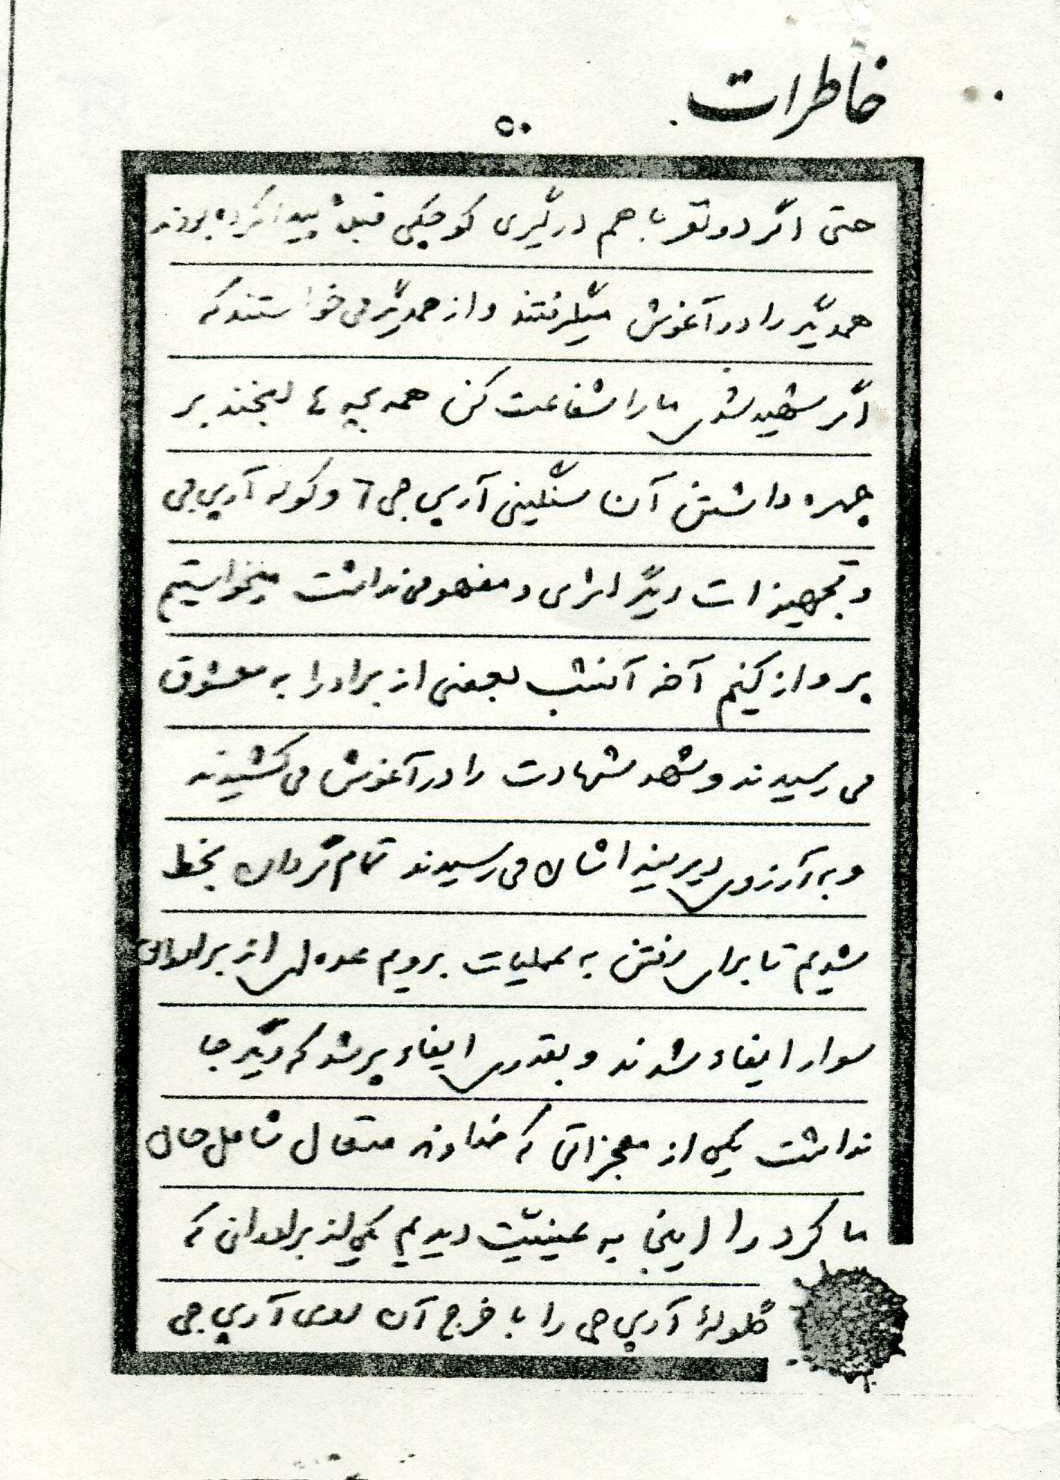 خاطرات
۵۰
حتی اگر دو نفر با هم درگیری کوچکی قبلاً پیدا کرده بودند
همدیگر را در آغوش میگرفتند و از همدیگر می خواستند که
اگر شهید شدی ما را شفاعت کن همه بچه ها لبخند بر
چهره داشتن آن سنگینی آرپی جی ۷ و کوله آرپی جی
و تجهیزات دیگر اثری و مفهومی نداشت میخواستیم
پرواز کنیم آخه آنشب بعضی از برادرا به معشوق
می رسیدند و شهد شهادت را در آغوش می کشیدند
و به آرزوی دیرینه اشان می رسیدند تمام گردان بخط
شدیم تا برای رفتن به عملیات برویم عده ای از برادران
سوار ایفاء شدند و بقدری ایفاء پر شد که دیگر جا
نداشت یکی از معجزاتی که خداوند متعال شامل حال
ما کرد را اینجا به عینیت دیدیم یکی از برادرانی که
گلولهٔ آرپی جی را با خرج آن روی آرپی جی